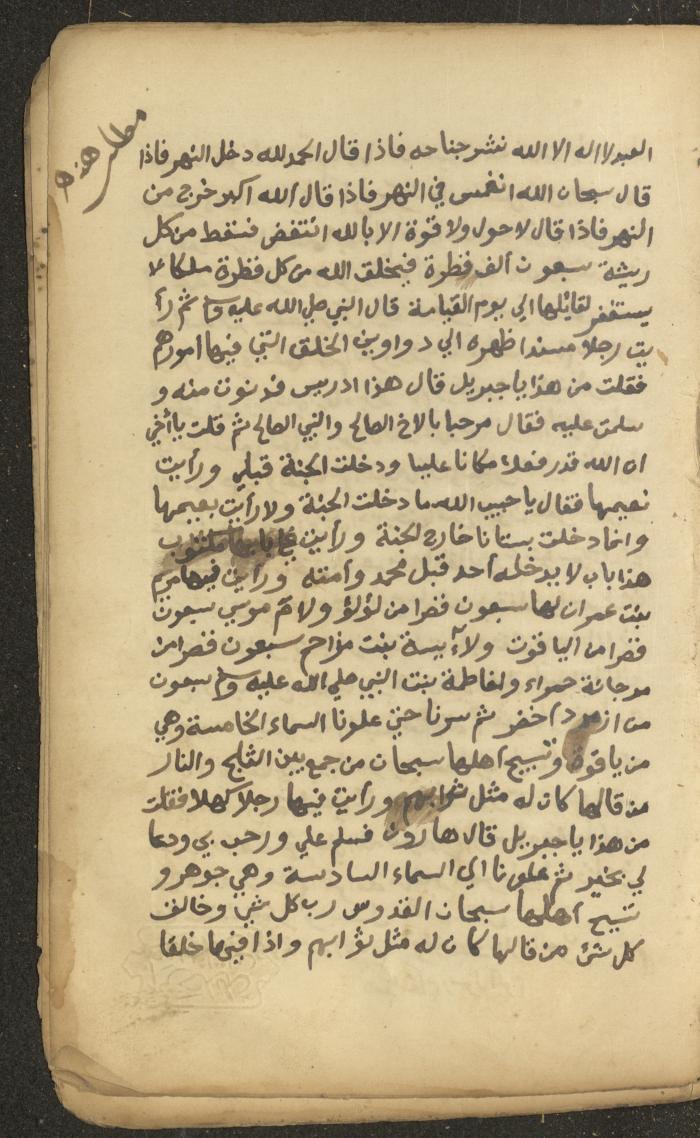 مطلب هذه
العبد لا اله الا الله نشر جناحه فاذا قال الحمد لله دخل النهر فاذا
قال سبحان الله انغمس في النهر فاذا قال الله اكبر خرج من
النهر فاذا قال لا حول ولا قوة الا بالله انتفض فسقط من كل
ريشة سبعون ألف قطرة فيخلق الله من كل قطرة ملكا
يستغفر لقائلها الي يوم القيامة قال النبي صلي الله عليه وسلم ثم رأ
يت رجلا مسندا ظهره الي دواوين الخلق التي فيها امورهم
فقلت من هذا يا جبريل قال هذا ادريس فدنوت منه و
سلمت عليه فقال مرحبا بالاخ الصالح والنبي الصالح ثم قلت يا أخي
ان الله قد رفعك مكانا عليا ودخلت الجنة قبلي ورأيت
نعيمها فقال يا حبيب الله ما دخلت الجنة ولا رأيت نعيمها
وانما دخلت بستانا خارج الجنة ورأيت علي بابها مكتوب
هذا باب لا يدخله أحد قبل محمد وأمته ورأيت فيها مريم
بنت عمران لها سبعون قصرا من لؤلؤ ولام موسي سبعون
قصرا من الياقوت ولآسية بنت مزاحم سبعون قصرا من
مرجانة حمراء ولفاطمة بنت النبي صلي الله عليه وسلم سبعون
من ازمرد اخضر ثم سرنا حتي علونا السماء الخامسة وهي
من ياقوة وتسبيح اهلها سبحان من جمع بين الثلج والنار
من قالها كان له مثل ثوابهم ورأيت فيها رجلا كهلا فقلت
من هذا يا جبريل قال هارون فسلم علي ورحب بي ودعا
لي بخير ثم علونا الي السماء السادسة وهي جوهر و
تسبيح اهلها سبحان القدوس رب كل شي وخالق
كل شئ من قالها كان له مثل ثوابهم واذا فيها خلقا